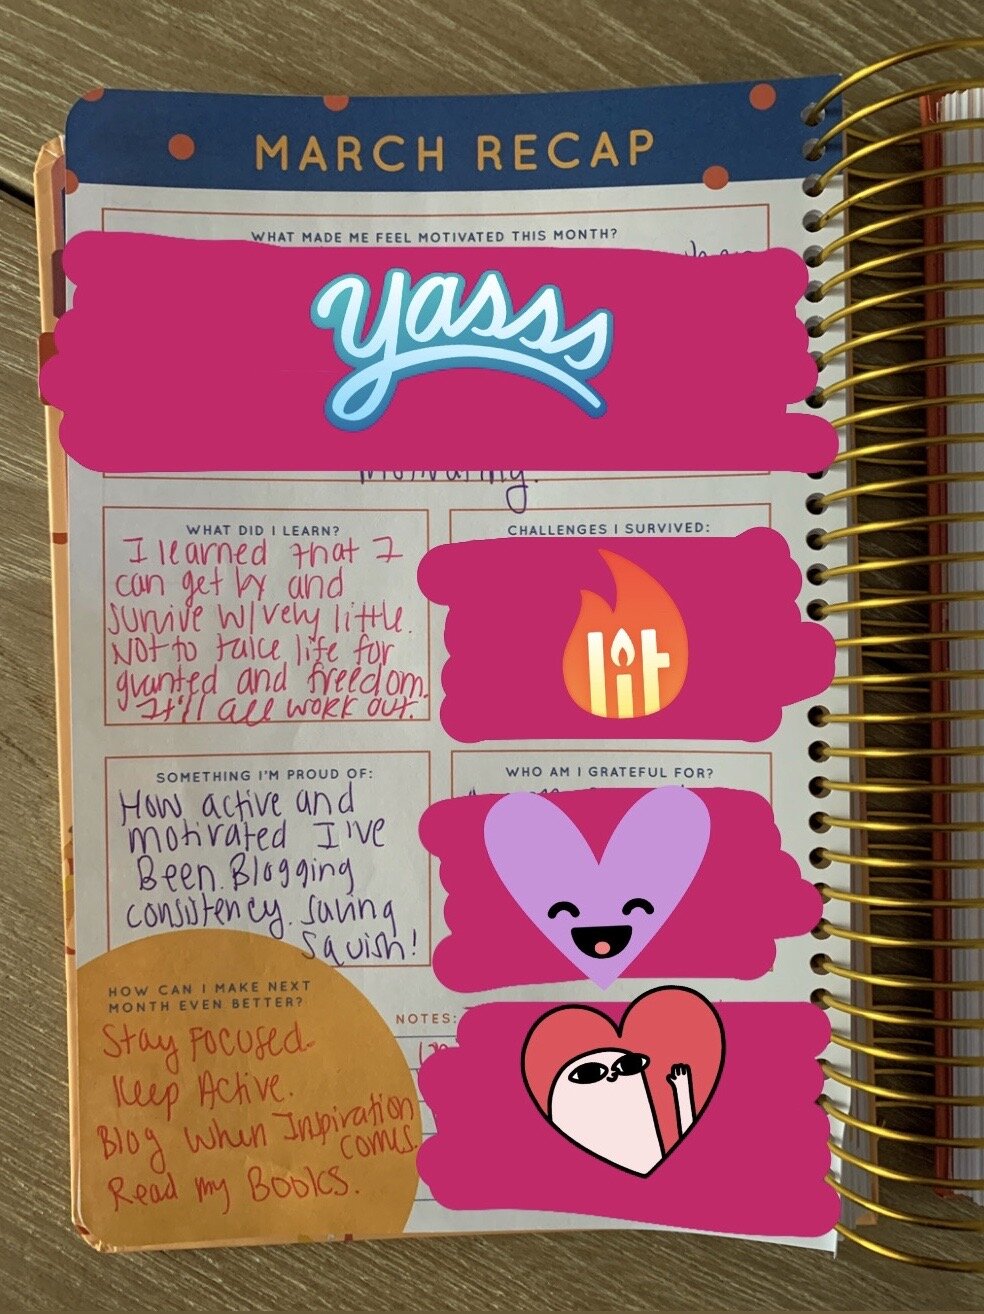 MARCH RECAP
WHAT MADE ME FEEL MOTIVATED THIS MONTH?
yasss
WHAT DID I LEARN?
I learned that I
can get by and
survive w/very little.
Not to take life for
granted and freedom.
It'll all work out.
CHALLENGES I SURVIVED:
lit
SOMETHING I'M PROUD OF:
How active and
motivated I've
Been. Blogging
consistency. Saving
Squish!
WHO AM I GRATEFUL FOR?
HOW CAN I MAKE NEXT
MONTH EVEN BETTER?
Stay Focused.
Keep Active.
Blog when Inspiration
comes.
Read my Books.
NOTES: